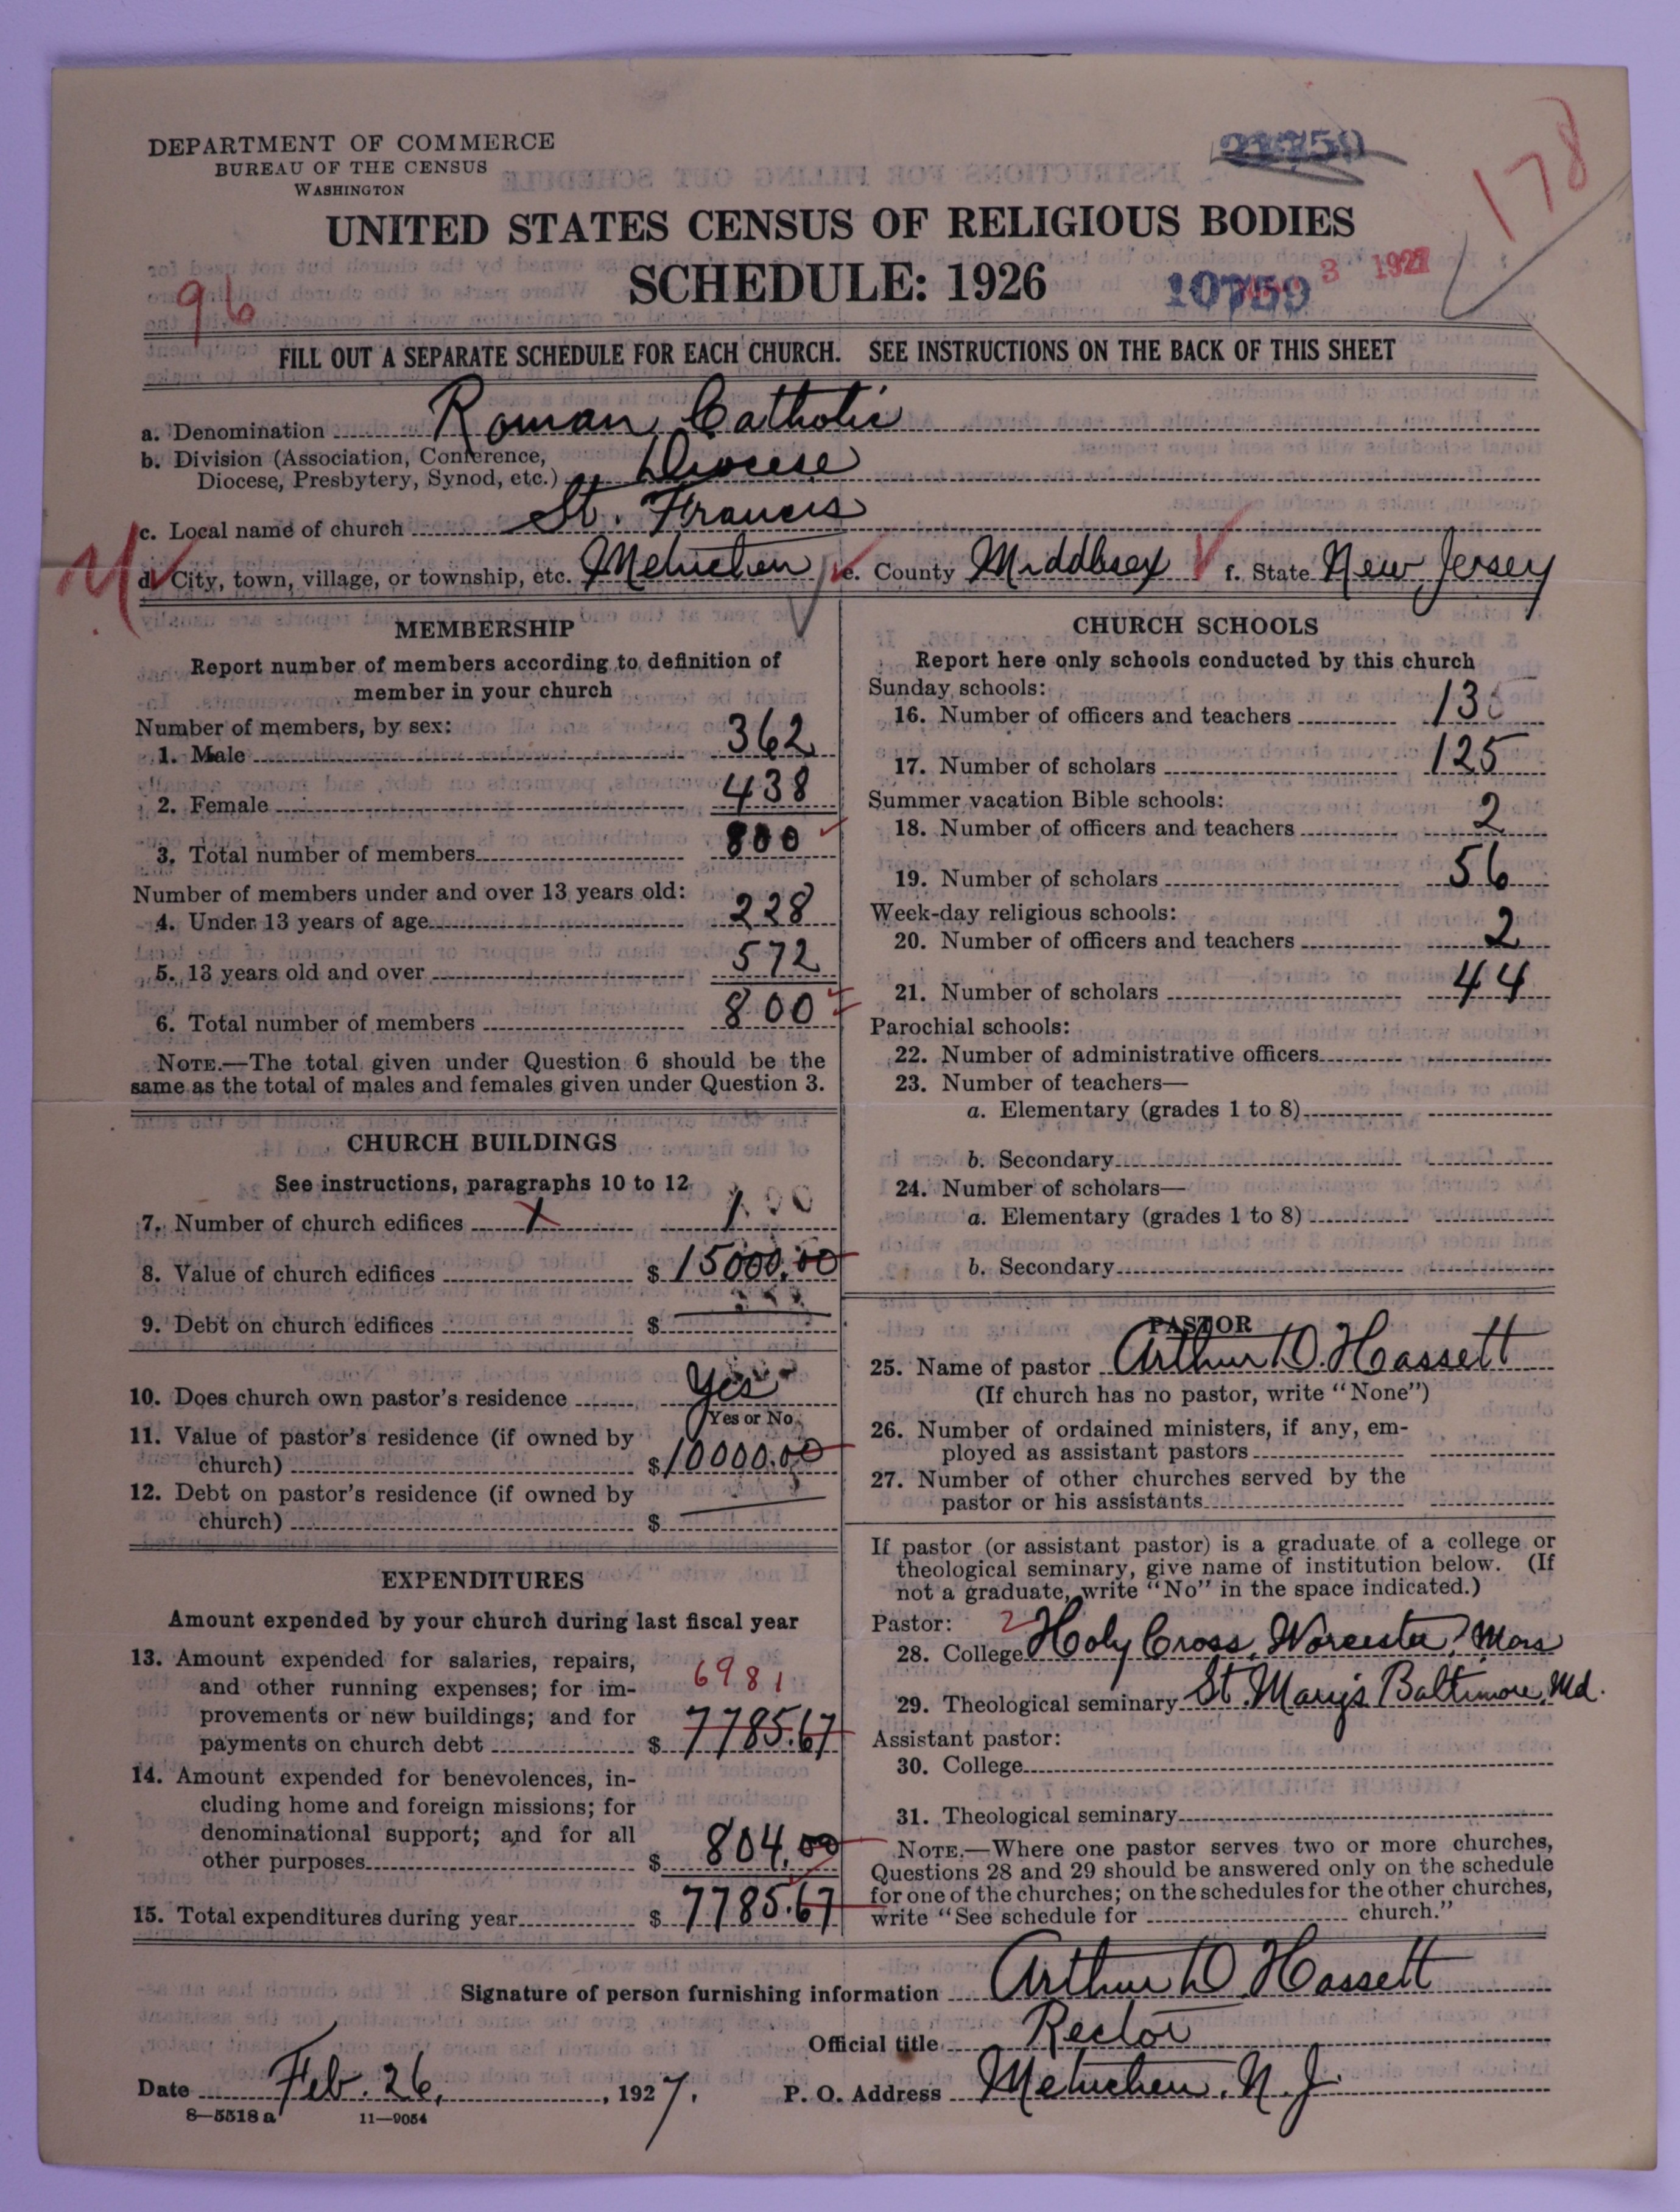 DEPARTMENT OF COMMERCE
BUREAU OF THE CENSUS
WASHINGTON
178
UNITED STATES CENSUS OF RELIGIOUS BODIES
SCHEDULE: 1926
96
10759
3 1927
FILL OUT A SEPARATE SCHEDULE FOR EACH CHURCH. SEE INSTRUCTIONS ON THE BACK OF THIS SHEET
a. Denomination Roman Catholic
b. Division (Association, Conference,
Diocese, Presbytery, Synod, etc.) Diocese
c. Local name of church St. Francis
d. City, town, village, or township, etc. Metuchen e. County Middlesex f. State New Jersey
MEMBERSHIP
Report number of members according to definition of
member in your church
Number of members, by sex:
1. Male 362
2. Female 438
3. Total number of members 800
Number of members under and over 13 years old:
4. Under 13 years of age 228
5. 13 years old and over 572
6. Total number of members 800
NOTE.—The total given under Question 6 should be the
same as the total of males and females given under Question 3.
CHURCH BUILDINGS
See instructions, paragraphs 10 to 12
7. Number of church edifices 1
8. Value of church edifices $ 15000.00
9. Debt on church edifices $
10. Does church own pastor's residence Yes
(Yes or No)
11. Value of pastor's residence (if owned by
church) $ 10000.00
12. Debt on pastor's residence (if owned by
church) $
EXPENDITURES
Amount expended by your church during last fiscal year
13. Amount expended for salaries, repairs,
and other running expenses; for im- 6981
provements or new buildings; and for
payments on church debt $ 7785.67
14. Amount expended for benevolences, in-
cluding home and foreign missions; for
denominational support; and for all
other purposes $ 804.00
15. Total expenditures during year $ 7785.67
CHURCH SCHOOLS
Report here only schools conducted by this church
Sunday schools:
16. Number of officers and teachers 13
17. Number of scholars 125
Summer vacation Bible schools:
18. Number of officers and teachers 2
19. Number of scholars 56
Week-day religious schools:
20. Number of officers and teachers 2
21. Number of scholars 44
Parochial schools:
22. Number of administrative officers
23. Number of teachers—
a. Elementary (grades 1 to 8)
b. Secondary
24. Number of scholars—
a. Elementary (grades 1 to 8)
b. Secondary
PASTOR
25. Name of pastor Arthur D. Hassett
(If church has no pastor, write "None")
26. Number of ordained ministers, if any, em-
ployed as assistant pastors
27. Number of other churches served by the
pastor or his assistants
If pastor (or assistant pastor) is a graduate of a college or
theological seminary, give name of institution below. (If
not a graduate, write "No" in the space indicated.)
Pastor: 2
28. College Holy Cross, Worcester, Mass
29. Theological seminary St. Mary's Baltimore, Md.
Assistant pastor:
30. College
31. Theological seminary
NOTE.—Where one pastor serves two or more churches,
Questions 28 and 29 should be answered only on the schedule
for one of the churches; on the schedules for the other churches,
write "See schedule for church."
Signature of person furnishing information Arthur D Hassett
Official title Rector
Date Feb. 26, 1927. P. O. Address Metuchen, N. J.
8—5518 a 11—9054